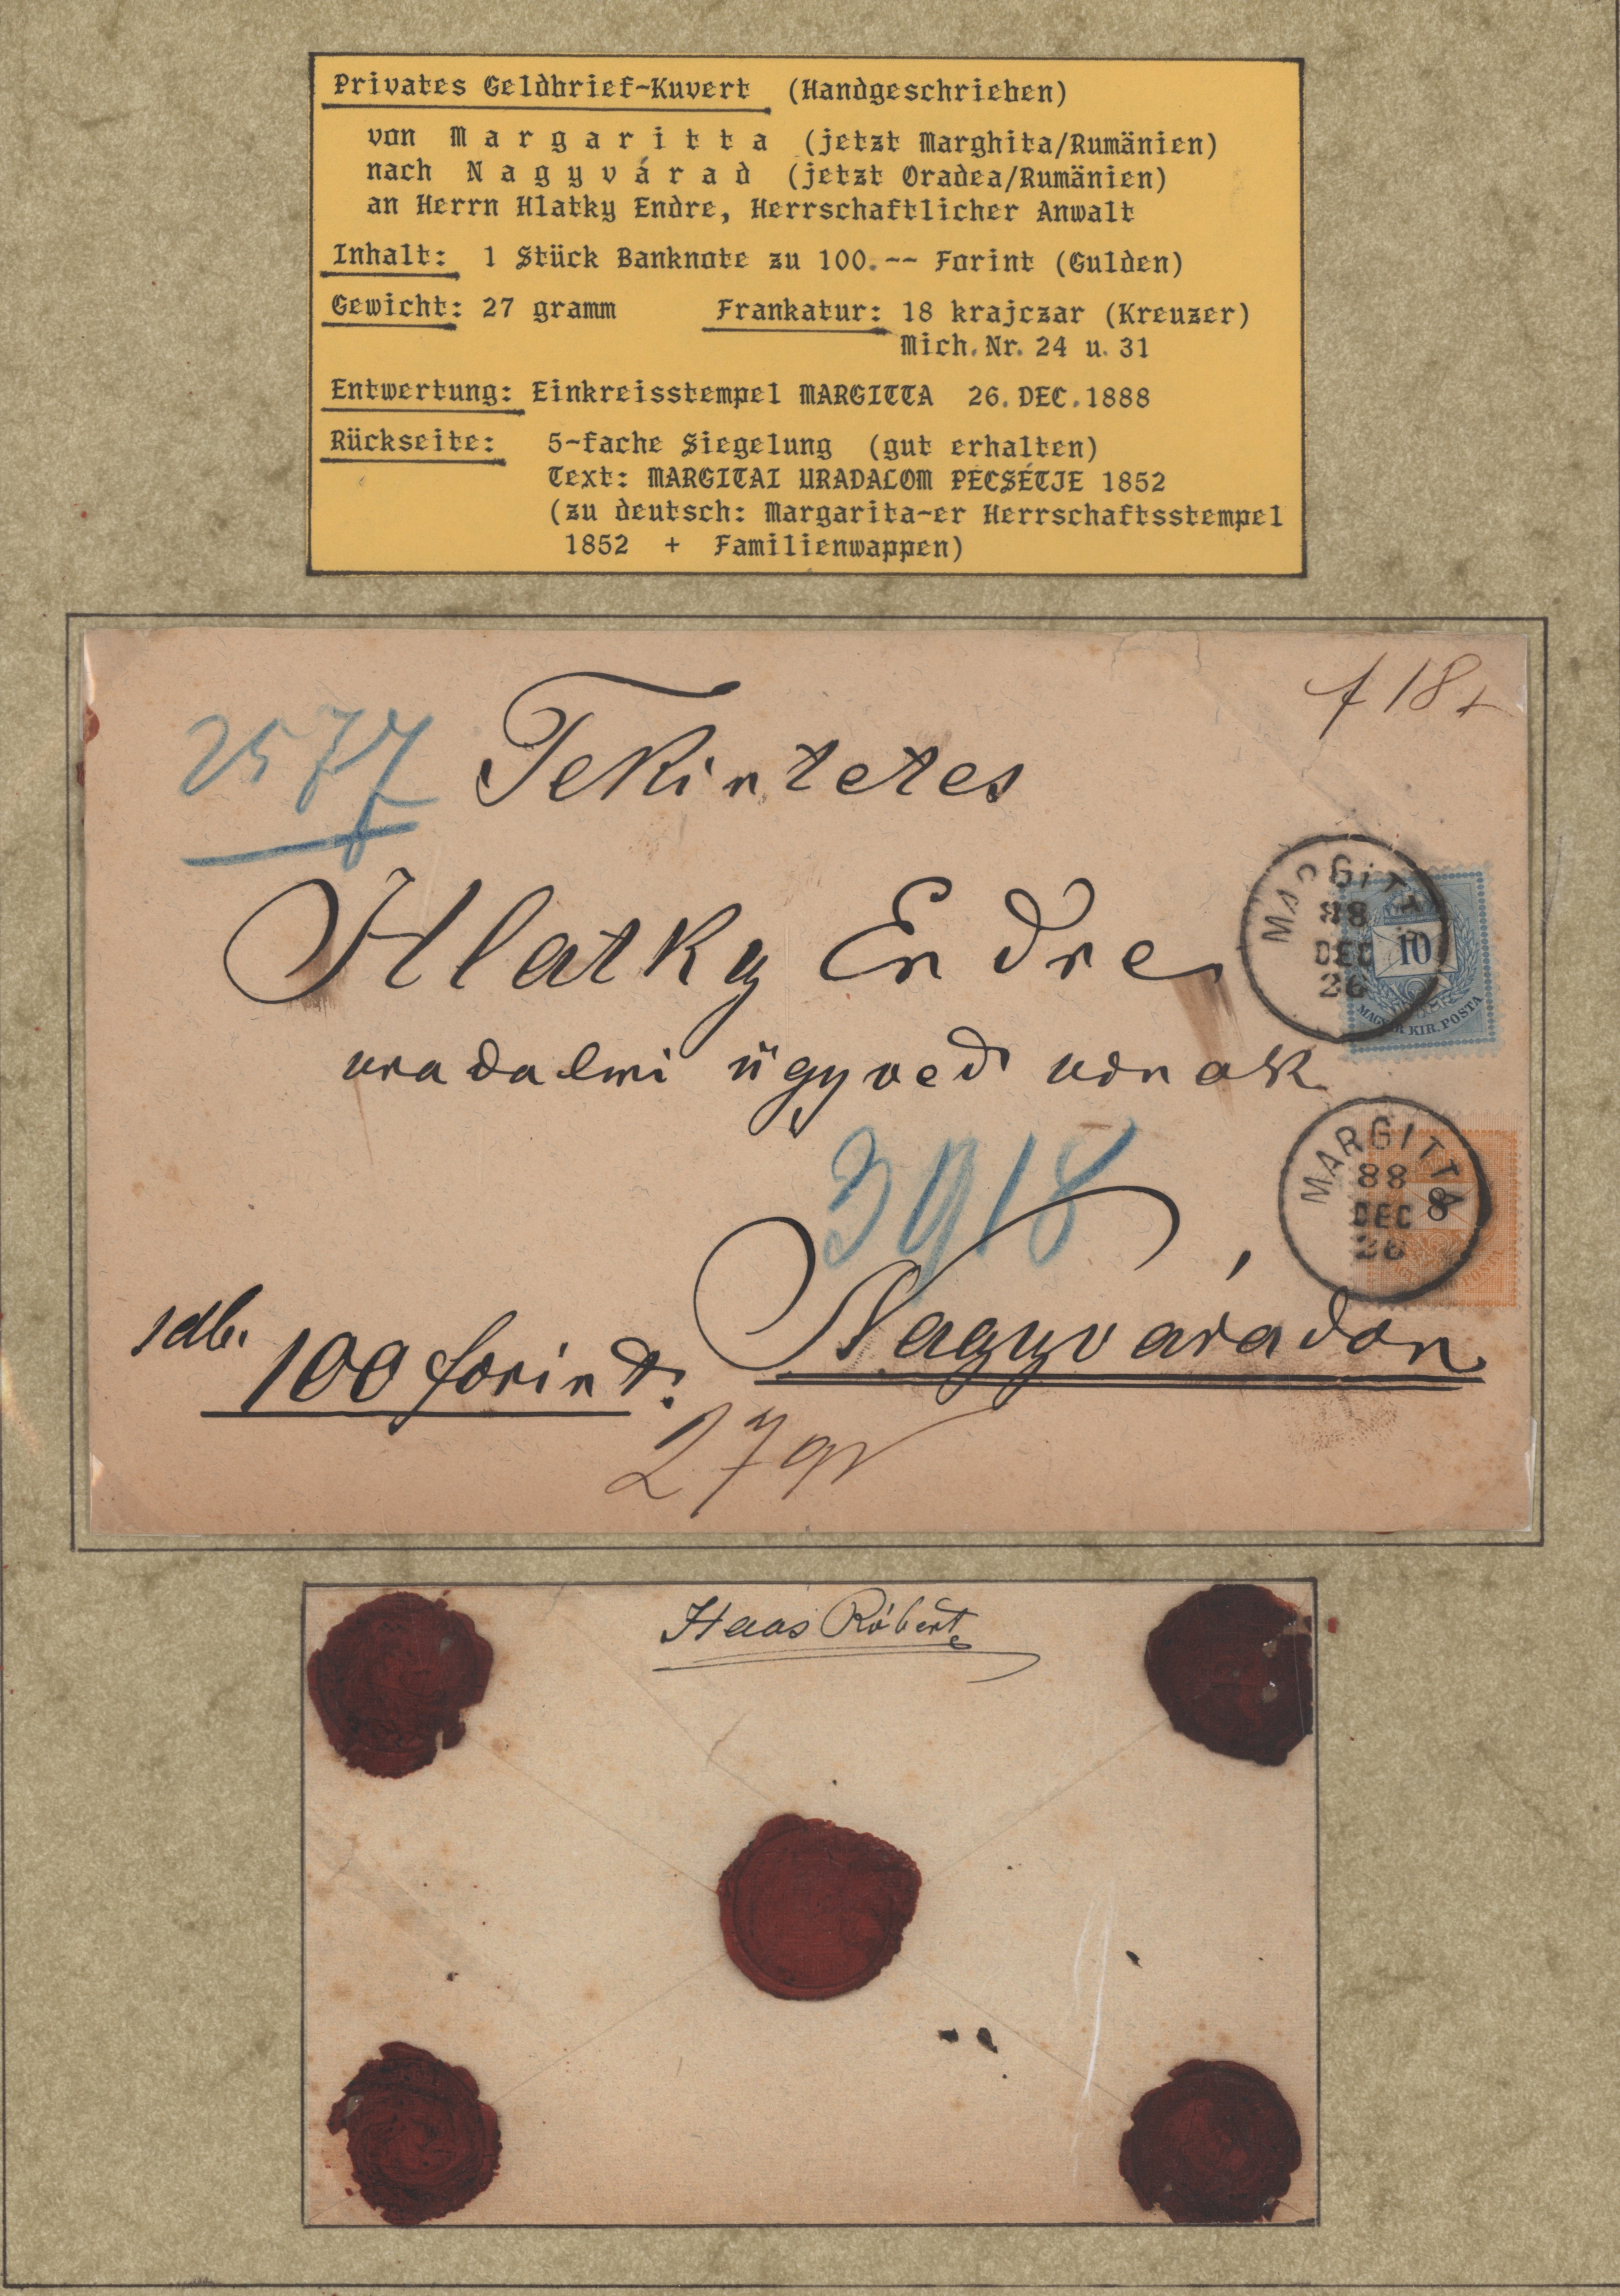 Privates Geldbrief-Kuvert (Handgeschrieben)
von M a r g a r i t t a (jetzt Marghita/Rumänien)
nach N a g y v á r a d (jetzt Oradea/Rumänien)
an Herrn Hlatky Endre, Herrschaftlicher Anwalt
Inhalt: 1 Stück Banknote zu 100.-- Forint (Gulden)
Gewicht: 27 gramm Frankatur: 18 krajczar (Kreuzer)
Mich.Nr. 24 u. 31
Entwertung: Einkreisstempel MARGITTA 26.DEC.1888
Rückseite: 5-fache Siegelung (gut erhalten)
Text: MARGITAI URADALOM PECSÉTJE 1852
(zu deutsch: Margarita-er Herrschaftsstempel
1852 + Familienwappen)
f 18 x
2577
Tekintetes
Hlatky Endre
uradalmi ügyved urnak
MARGITTA
88
DEC
26
10
MAGYAR KIR. POSTA
3918
MARGITTA
88
DEC
26
8
1 db. 100 forint.
Nagyváradon
27 gr
Haas Róbert